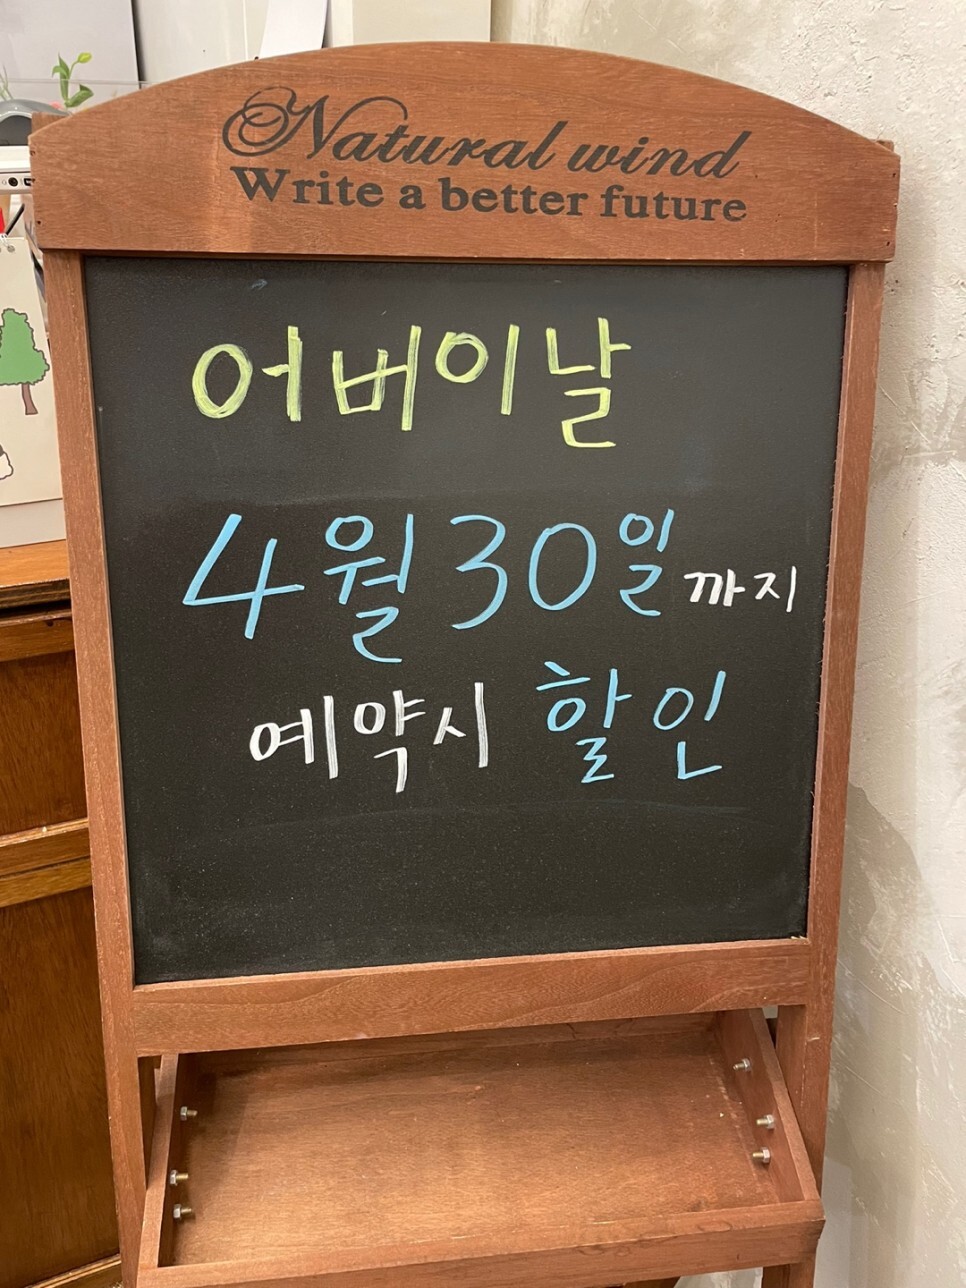 Natural wind
Write a better future
어버이날
4월 30일까지
예약시 할인